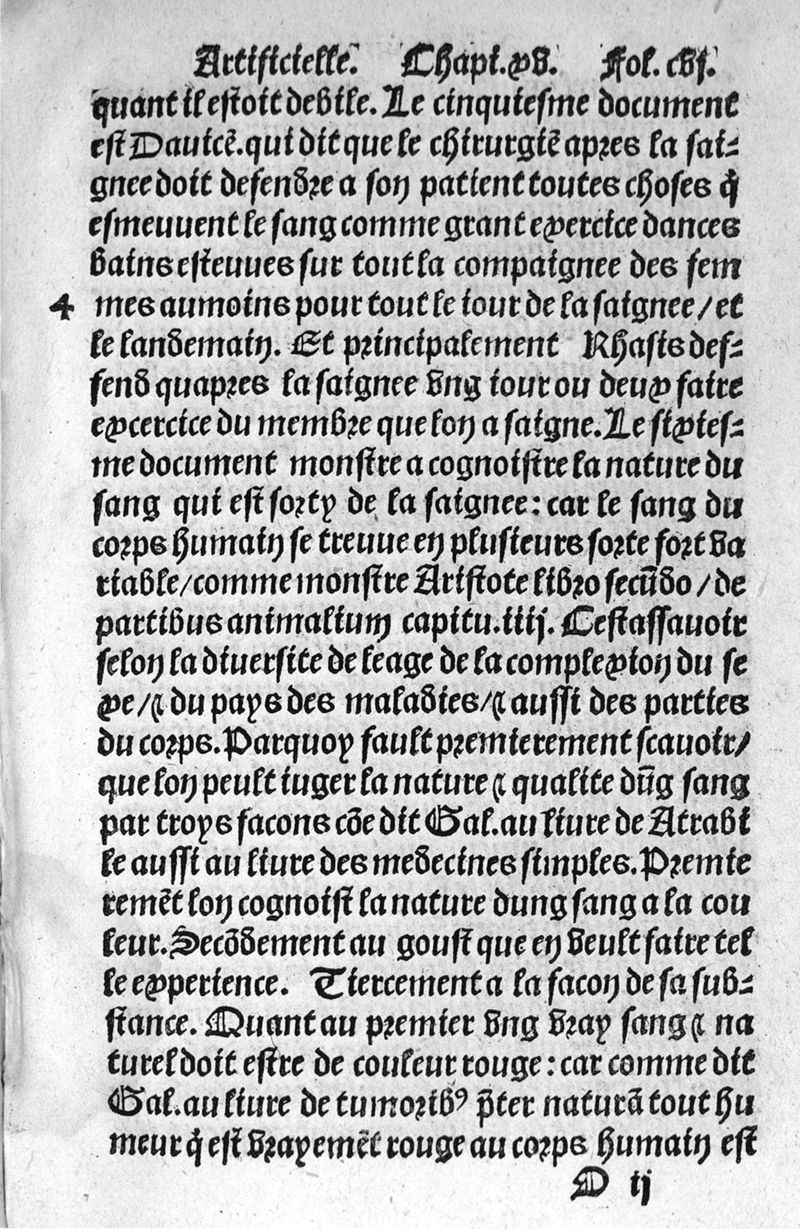 Artificielle. Chapi. xv. Fol. cvi.
quant il estoit debile. Le cinquiesme document
est Dauicē. qui dit que le chirurgiē apres la sai-
gnee doit defendre a son patient toutes choses q̄
esmeuuent le sang comme grant exercice dances
bains esteuues sur tout la compaignee des fem
4 mes aumoins pour tout le iour de la saignee / et
le landemain. Et principalement Rhasis def-
fend quapres la saignee vng iour ou deux faire
excercice du membre que lon a saigne. Le sixies-
me document monstre a cognoistre la nature du
sang qui est sorty de la saignee: car le sang du
corps humain se treuue en plusieurs sorte fort va
riable / comme monstre Aristote libro secūdo / de
partibus animalium capitu. iiij. Cestassauoir
selon la diuersite de leage de la complexion du se
xe / ⁊ du pays des maladies / ⁊ aussi des parties
du corps. Parquoy fault premierement scauoir /
que lon peult iuger la nature ⁊ qualite dūg sang
par troys facons cōe dit Gal. au liure de Atrabi
le aussi au liure des medecines simples. Premie
remēt lon cognoist la nature dung sang a la cou
leur. Secōdement au goust que en veult faire tel
le experience. Tiercement a la facon de sa sub-
stance. Quant au premier vng vray sang ⁊ na
turel doit estre de couleur rouge: car comme dit
Gal. au liure de tumoribꝰ p̄ter naturā tout hu
meur q̄ est vrayemēt rouge au corps humain est
D ij